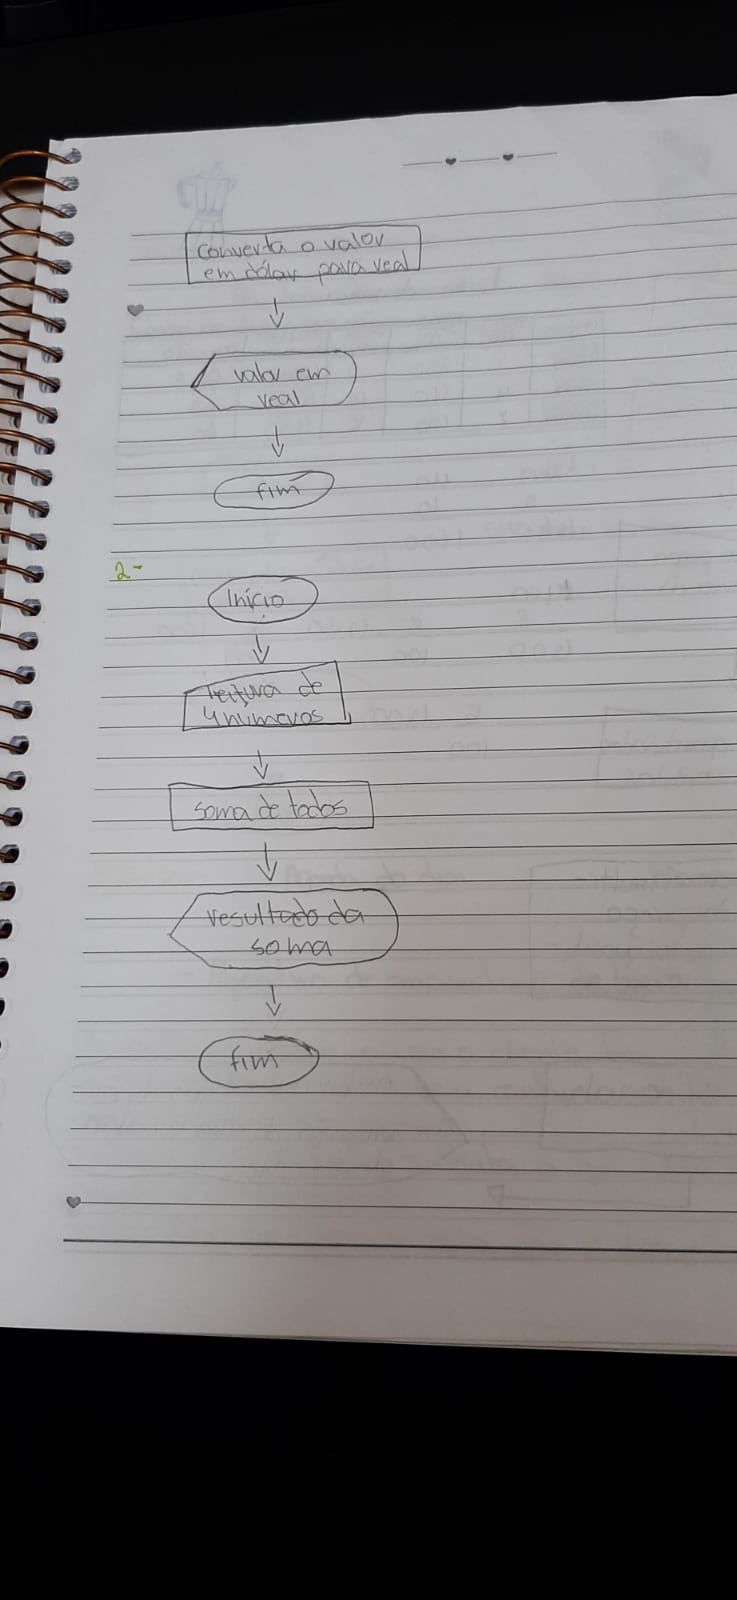 Converta o valor
em dólar para real
valor em
real
fim
2-
Início
Leitura de
4 números
soma de todos
resultado da
soma
fim